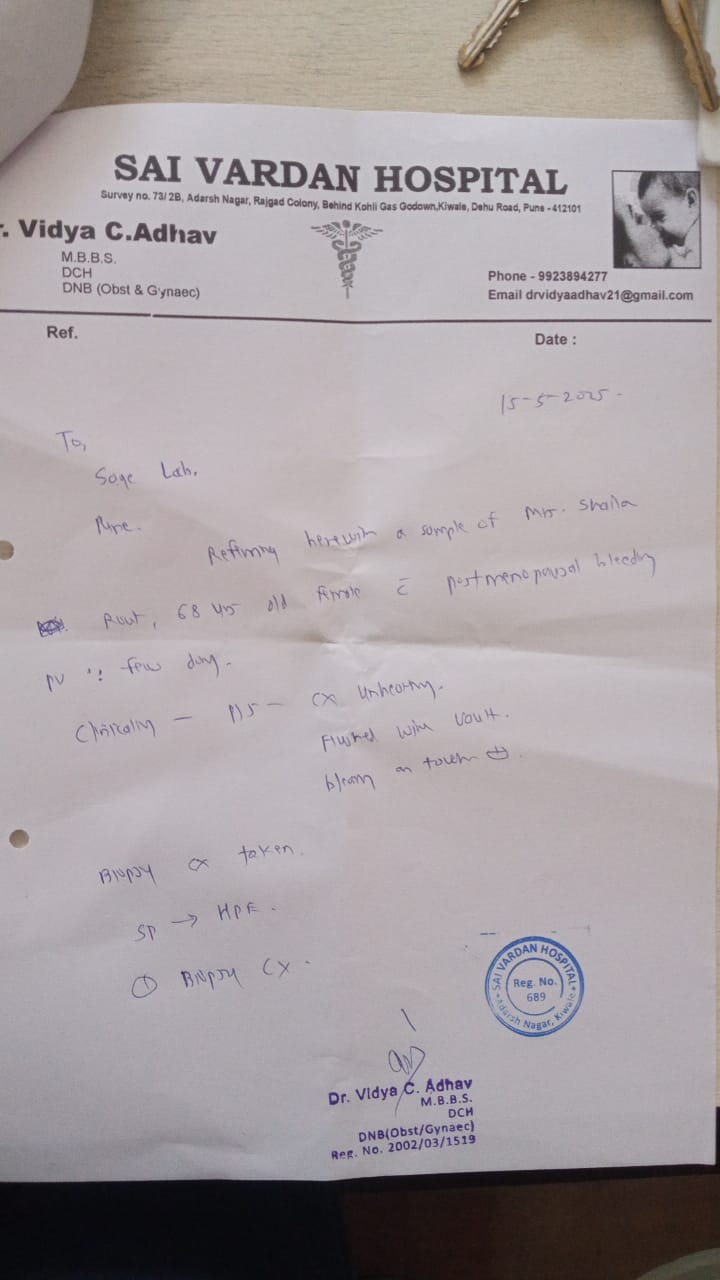 SAI VARDAN HOSPITAL
Survey no. 73/2B, Adarsh Nagar, Rajgad Colony, Behind Kohli Gas Godown,Kiwale, Dehu Road, Pune -412101
. Vidya C.Adhav
M.B.B.S.
DCH
DNB (Obst & Gynaec)
Phone - 9923894277
Email drvidyaadhav21@gmail.com
Ref.
Date :
15-5-2025.
To,
Sage Lab.
Pune.
Referring herewith a sample of Mrs. Shaila
Rout, 68 yrs old female c̄ postmenopausal bleeding
PV few days.
Clinically - P/S - CX Unhealthy.
Flushed with vault.
bleeding on touch ⊕.
Biopsy CX taken.
→ HPE.
① Biopsy CX.
SAI VARDAN HOSPITAL
Reg. No.
689
Adarsh Nagar, Kiwale
Dr. Vidya C. Adhav
M.B.B.S.
DCH
DNB(Obst/Gynaec)
Reg. No. 2002/03/1519